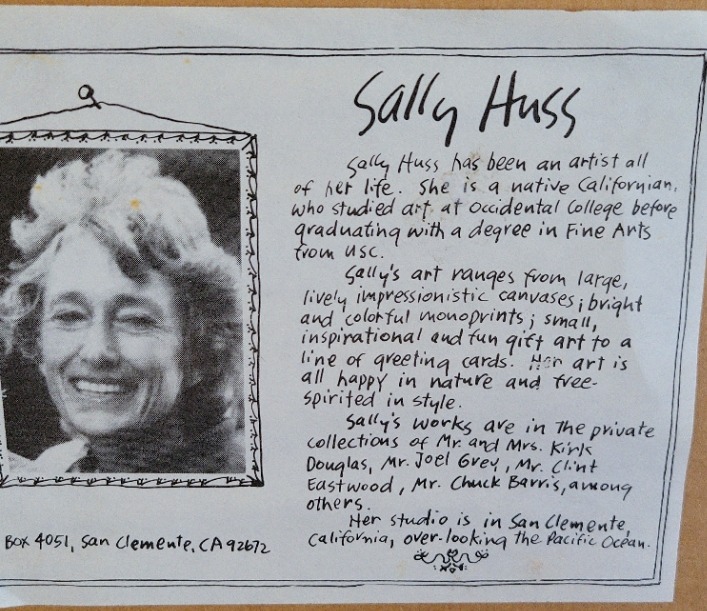 Sally Huss
Sally Huss has been an artist all
of her life. She is a native Californian,
who studied art at Occidental College before
graduating with a degree in Fine Arts
from USC.
Sally's art ranges from large,
lively impressionistic canvases; bright
and colorful monoprints; small,
inspirational and fun gift art to a
line of greeting cards. Her art is
all happy in nature and free-
spirited in style.
Sally's works are in the private
collections of Mr. and Mrs. Kirk
Douglas, Mr. Joel Grey, Mr. Clint
Eastwood, Mr. Chuck Barris, among
others.
Her studio is in San Clemente,
California, over-looking the Pacific Ocean.
Box 4051, San Clemente, CA 92672